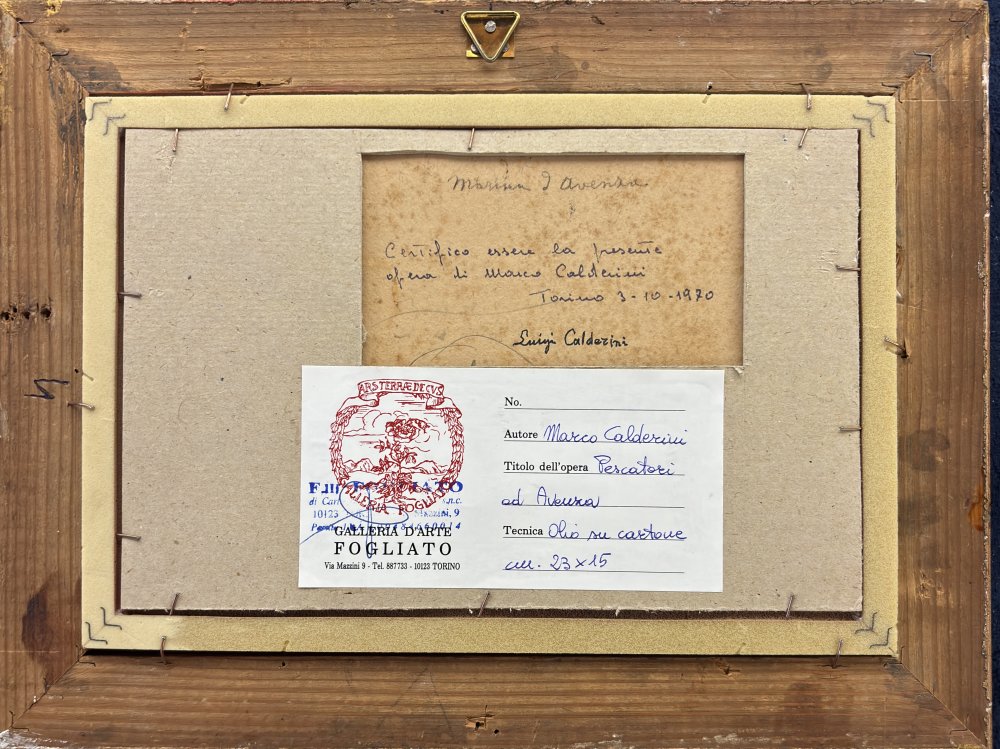 Marina d'Avenza
Certifico essere la presente
opera di Marco Calderini
Torino 3-10-1970
Luigi Calderini
ARS TERRÆ DECVS
GALLERIA FOGLIATO
F.lli FOGLIATO
di Carl s.n.c.
10123 Mazzini, 9
GALLERIA D'ARTE
FOGLIATO
Via Mazzini 9 - Tel. 887733 - 10123 TORINO
No.
Autore Marco Calderini
Titolo dell'opera Pescatori
ad Avenza
Tecnica Olio su cartone
cm. 23x15